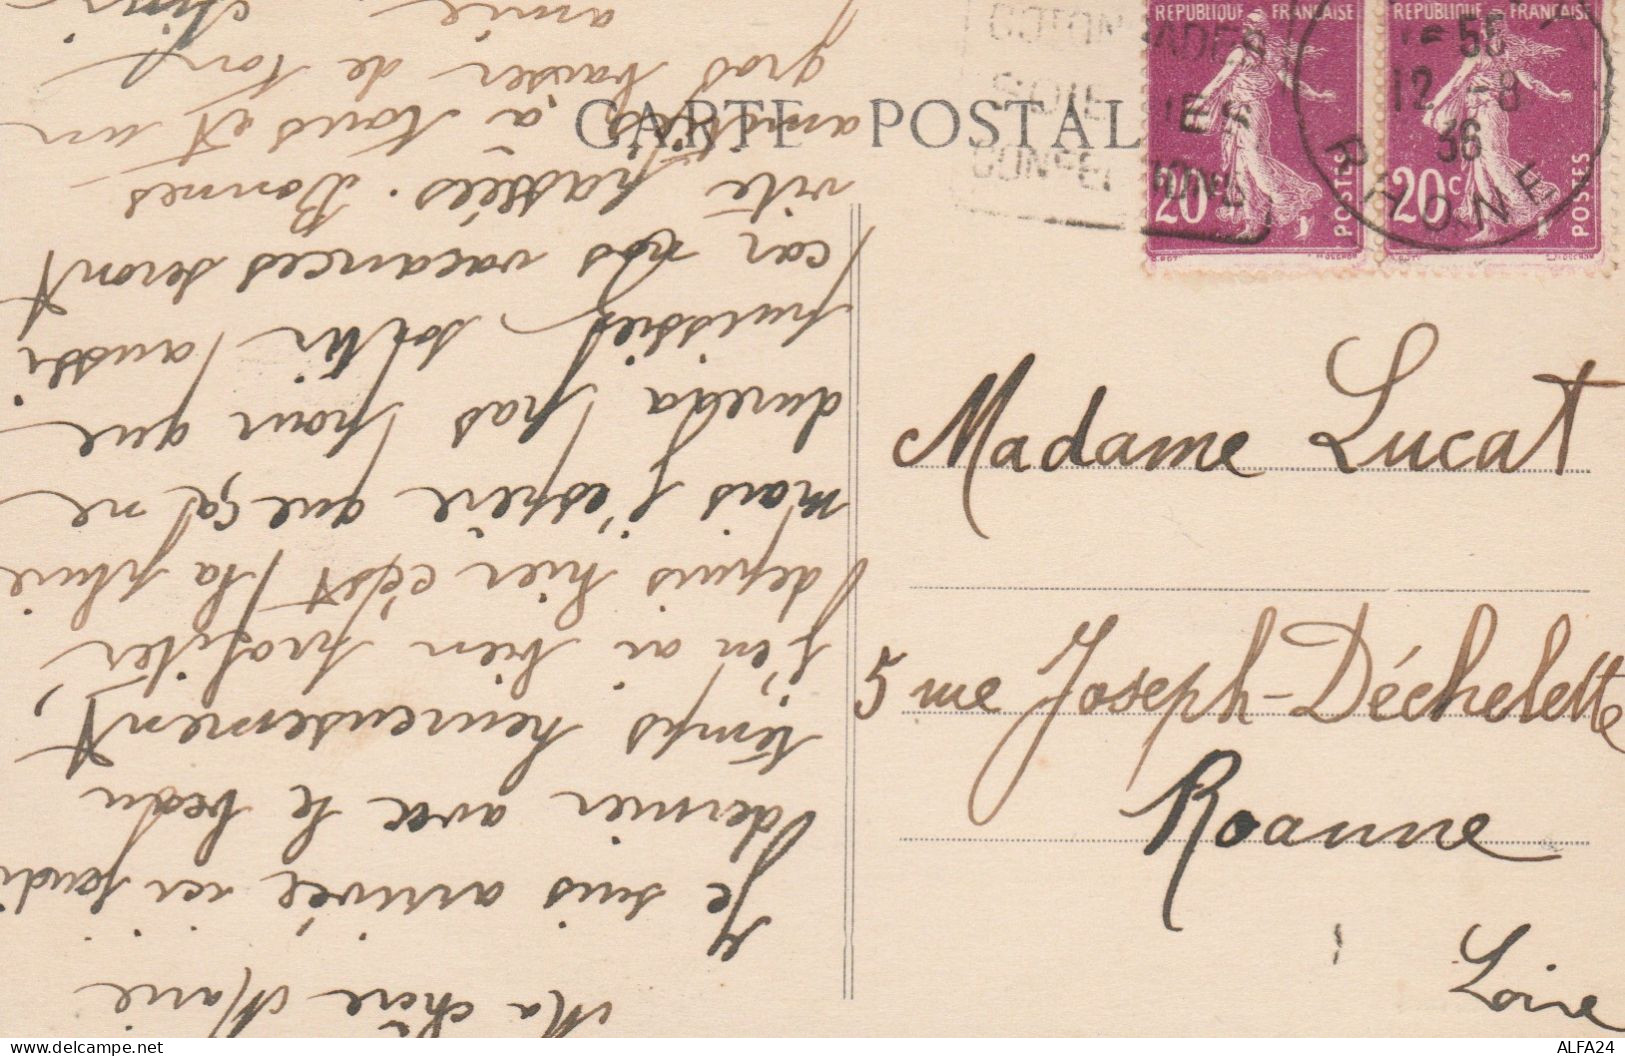 Ma chère Marie
Je suis arrivée ici jeudi
dernier avec le beau
temps heureusement,
j'en ai bien profiter
depuis hier c'est la pluie
mais j'espère que ça ne
durera pas pour que
puissiez sortir aussi
car nos vacances seront
vite passées. Bonnes
amitiés à tous et un
gros baiser de ton
amie
CARTE POSTALE
COTONNADES
SOIERIES
CONFECTIONS
REPUBLIQUE FRANÇAISE
20c
POSTES
REPUBLIQUE FRANÇAISE
20c
POSTES
55
12 -8
36
RHONE
Madame Lucat
5 rue Joseph-Déchelette
Roanne
Loire
www.delcampe.net
ALFA24